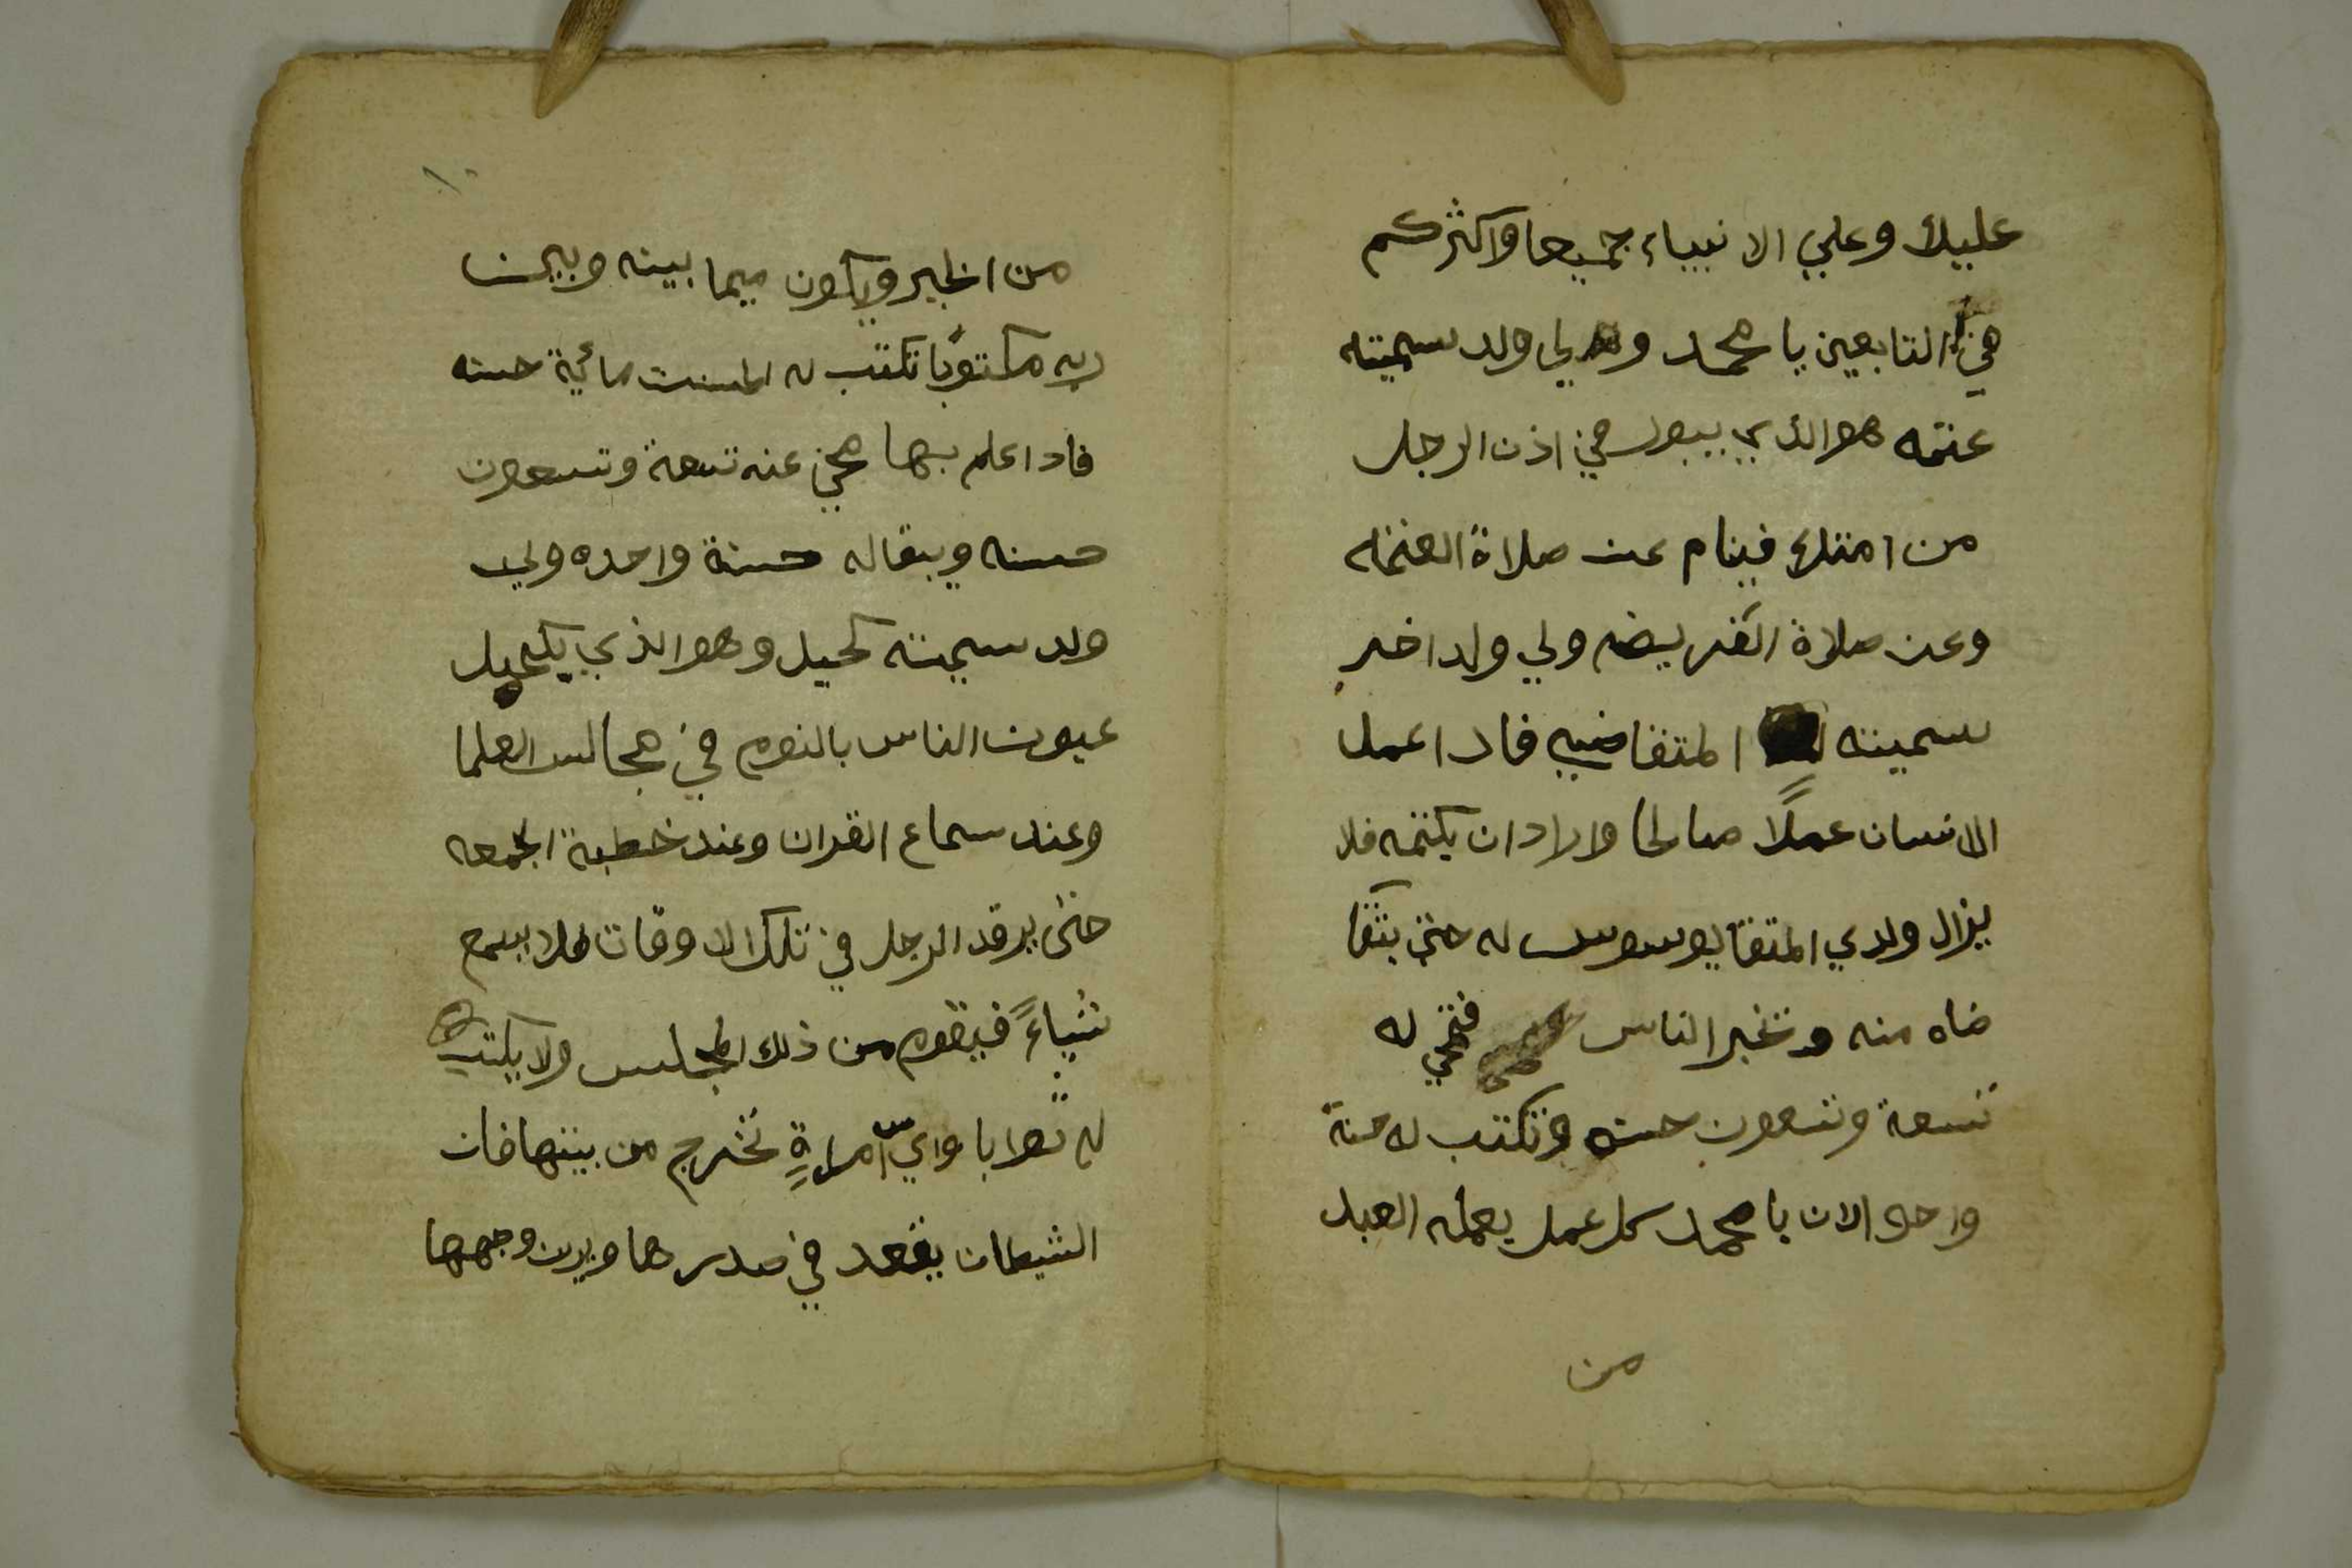 عليك وعلي الانبياء جميعا واكثركم
من التابعين يا محمد ولي ولد سميته
عتمه هو الذي يبول في اذن الرجل
من امتك فينام عن صلاة العتمه
وعن صلاة الفريضه ولي ولد اخر
سميته المتقاضيي فادا عمل
الانسان عملًا صالحا وارادان يكتمه فلا
يزال ولدي المتقا يوسوس له حتى يتقا
ضاه منه وتخبر الناس فتحي له
تسعة وتسعون حسنه وتكتب له حسنة
واحده الان يا محمد كل عمل يعمله العبد
من
١٠
من الخير ويكون فيما بينه وبين
ربه مكتوبًا تكتب له مائية حسنه
فادا علم بها محي عنه تسعة وتسعون
حسنه ويبقا له حسنة واحده ولي
ولد سميته كحيل وهو الذي يكحيل
عيون الناس بالنوم في مجالس العلما
وعند سماع القران وعند خطبة الجمعه
حتى يرقد الرجل في تلك الاوقات فلا يسمع
شياءً فيقوم من ذلك المجلس ولا يكتب
له ثوابا واي امراةٍ تخرج من بيتها فان
الشيطان يقعد في صدرها ويزين وجهها